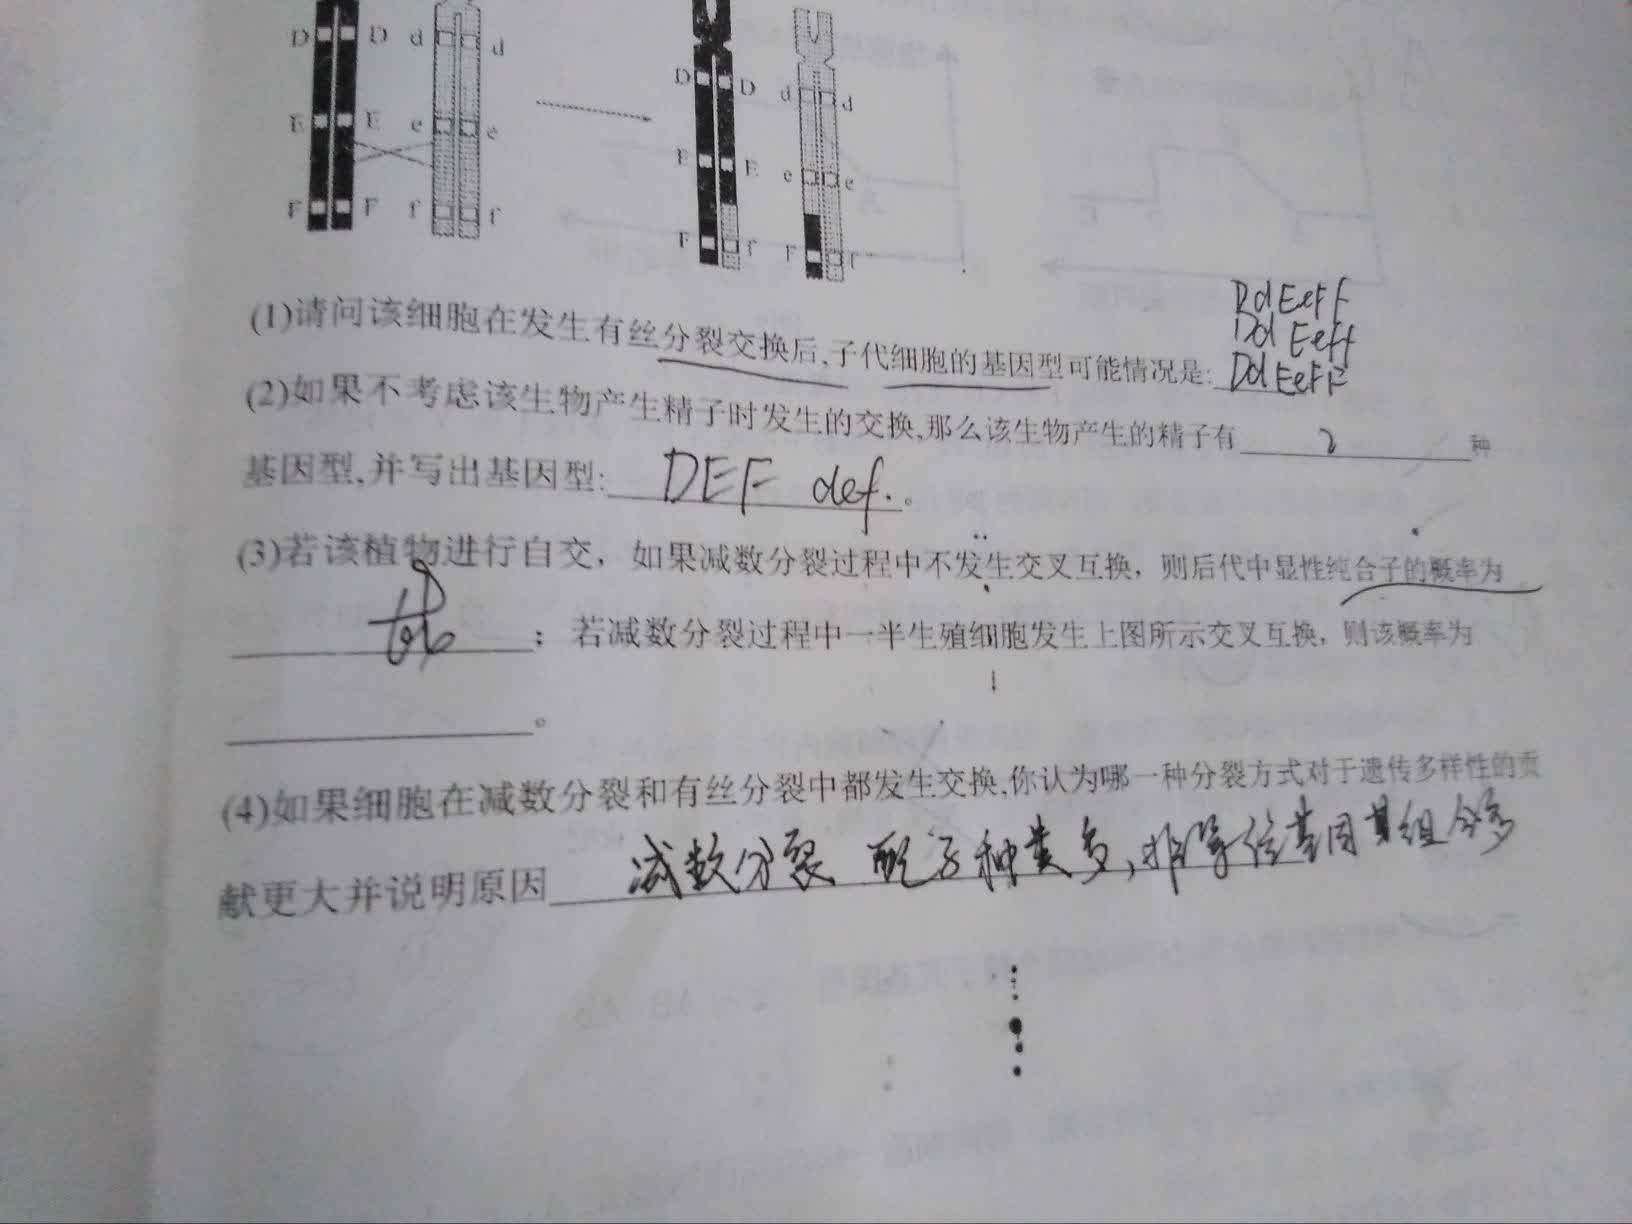 D D d d D D d d
E E e e E E e e
F F f f F f F f
DdEeFf
(1)请问该细胞在发生有丝分裂交换后,子代细胞的基因型可能情况是:
DdEeff
DdEeFF
(2)如果不考虑该生物产生精子时发生的交换,那么该生物产生的精子有 2 种
基因型,并写出基因型: DEF def. 。
(3)若该植物进行自交，如果减数分裂过程中不发生交叉互换，则后代中显性纯合子的概率为
；若减数分裂过程中一半生殖细胞发生上图所示交叉互换，则该概率为
。
(4)如果细胞在减数分裂和有丝分裂中都发生交换,你认为哪一种分裂方式对于遗传多样性的贡
献更大并说明原因 减数分裂 配子种类多,非等位基因其组合多